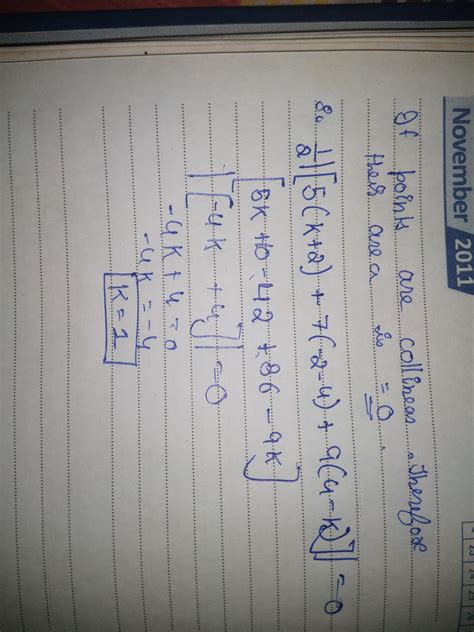 November 2011
If points are collinear. Therefore
their area is = 0.
So 1/2 |[5(k+2) + 7(-2-4) + 9(4-k)]| = 0
[5k+10-42+36-9k]
|[-4k +4]| = 0
-4k+4=0
-4k = -4
k = 1